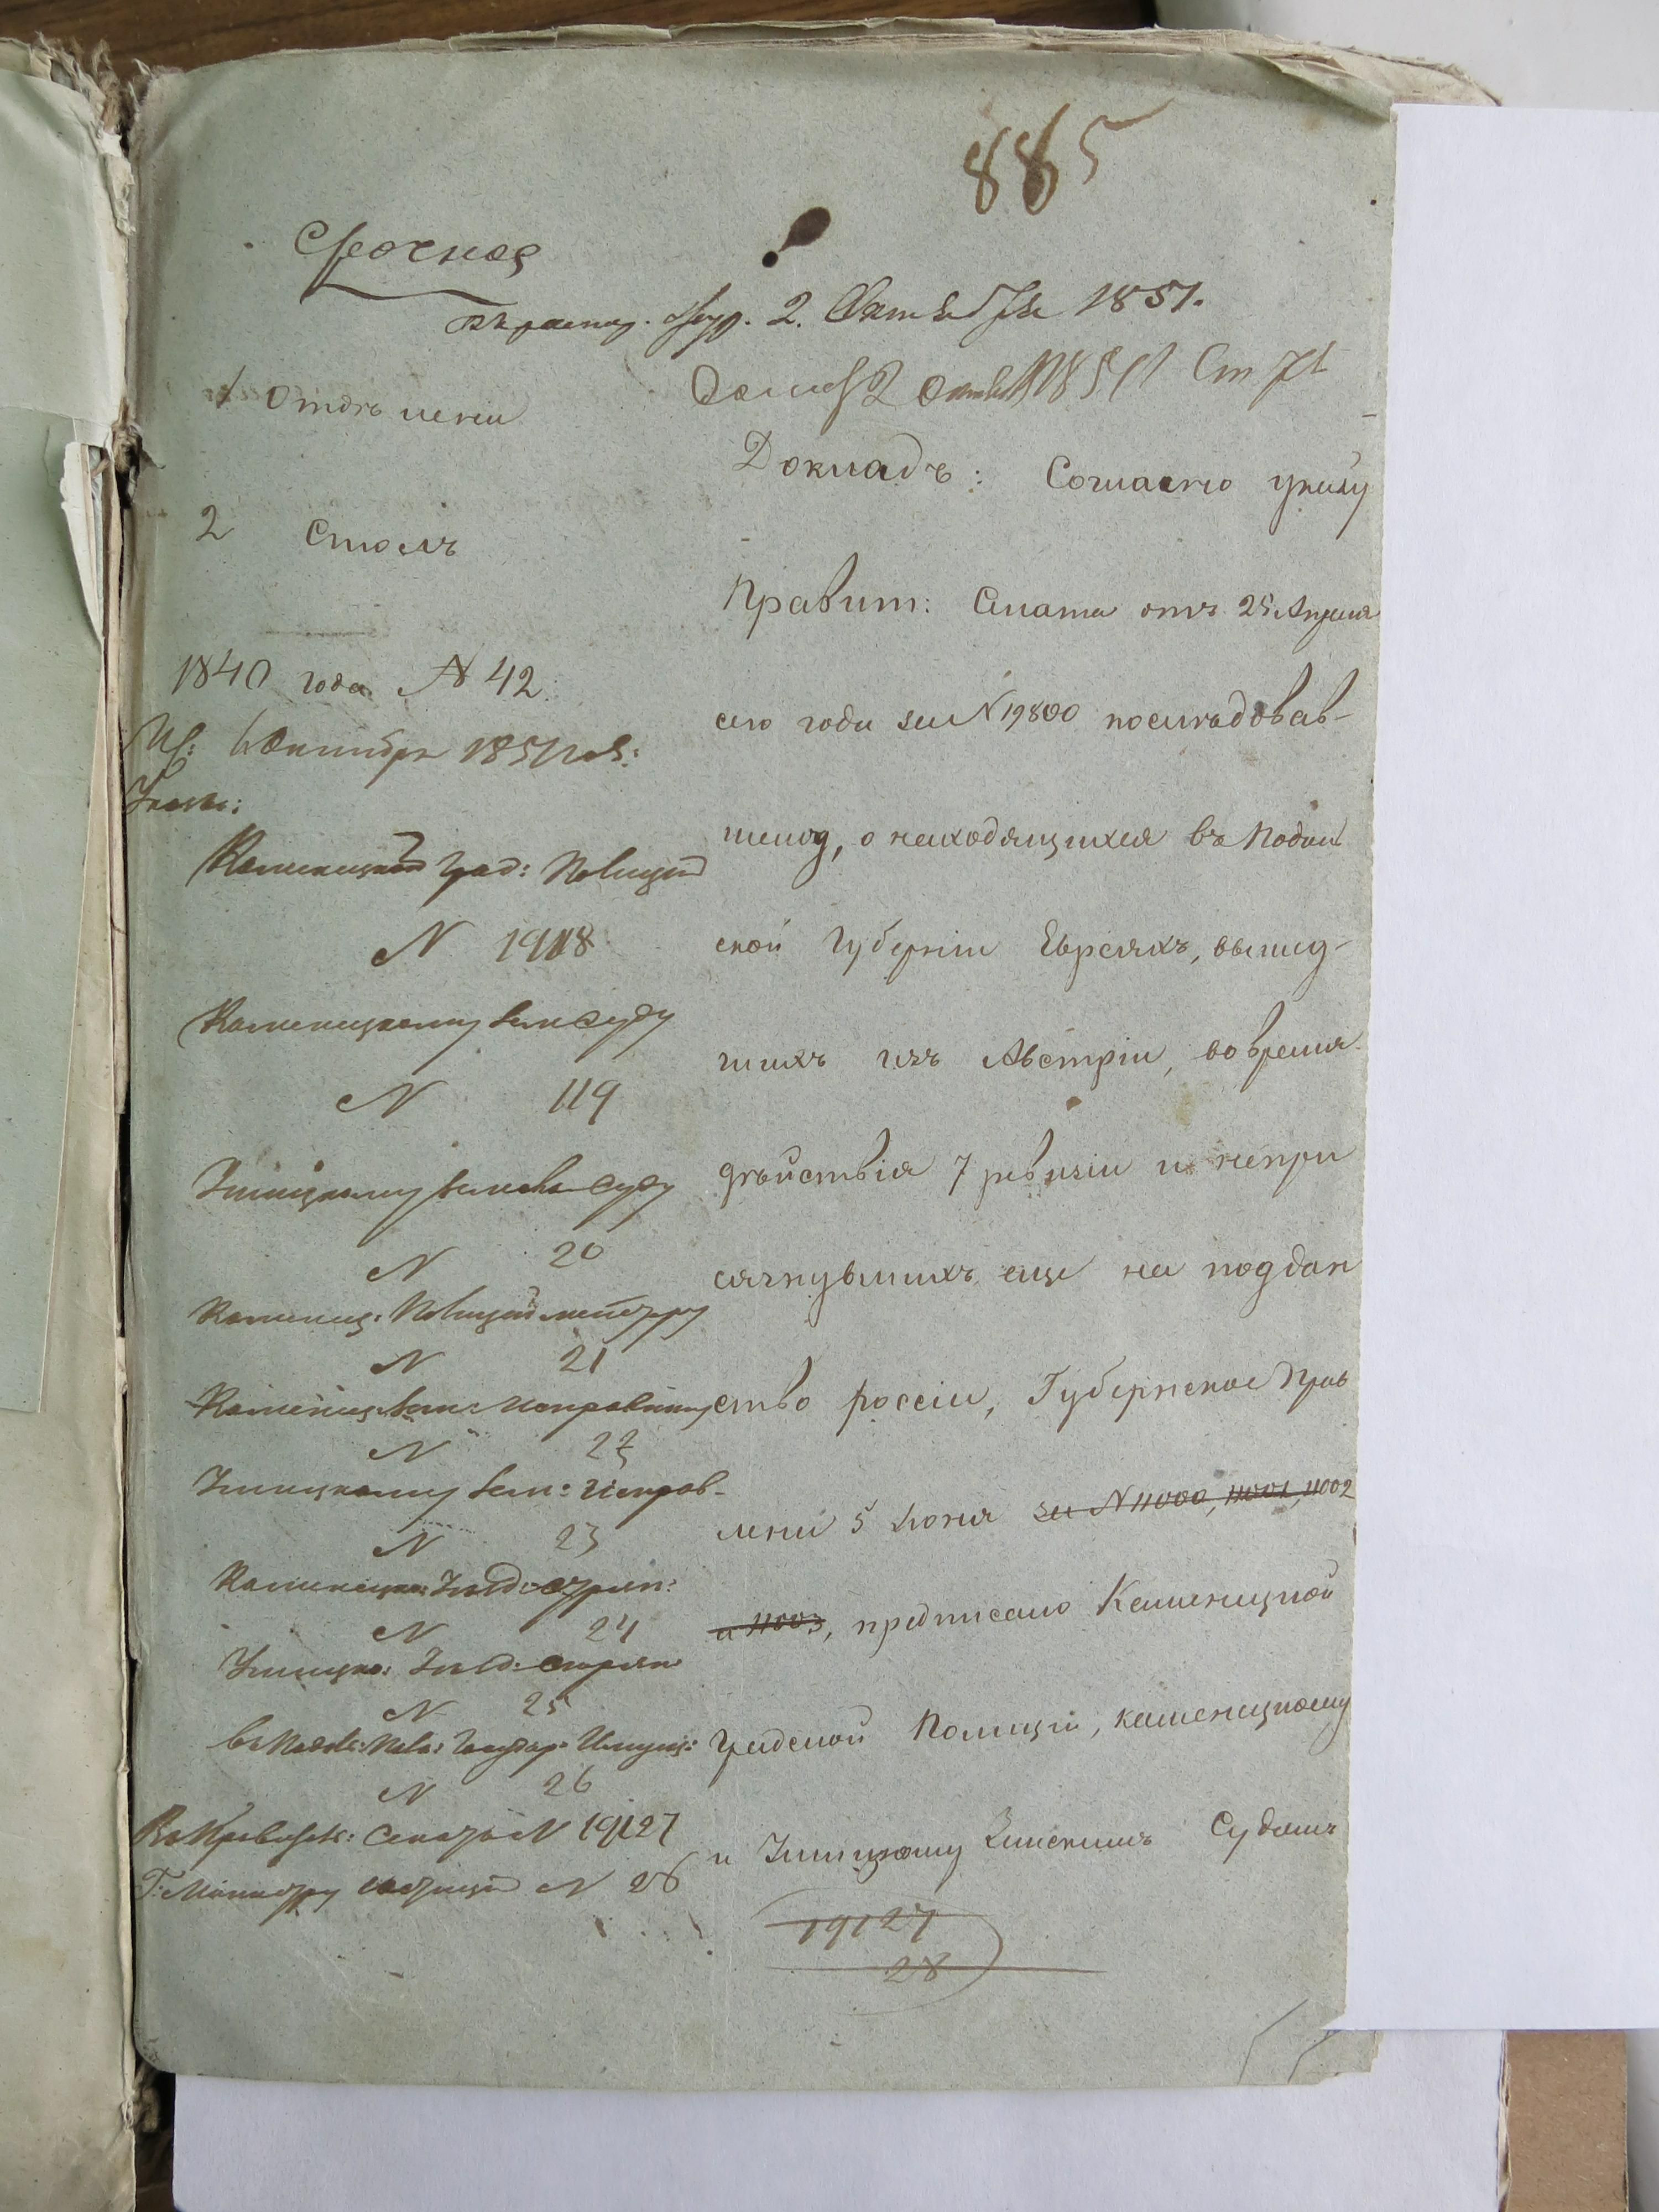 885
Срочное
журн. 2. Октября 1851.
2 Октября 1851 Ст
1 Отдѣленіи
2 Столъ
1840 года № 42.
Исп: Октября 1851 года:
Указы:
Каменецкой Град: Полиціи
N 19118
Каменецкому Зем Суду
N 119
Ушицкому Земско Суду
N 20
Каменец: Полицiймейстеру
N 21
Каменец: Зем: Исправнику
N 22
Ушицкому Зем: Исправ-
N 23
Каменецко: Уѣзд: Стряп:
N 24
Ушицко: Уѣзд: Стряп:
N 25
въ Подоль: Пала: Государ: Имущ:
N 26
Въ Правит: Сенатъ N 19127
Г: Министру Юстиціи N 28
Докладъ: Согласно указу
Правит: Сената отъ 25 Апреля
сего года за N 19800 послѣдовав-
шему, о находящихся въ Подоль
ской Губерніи Евреяхъ, вышед-
шихъ изъ Австріи, во время
дѣйствія 7 ревизіи и непри
сягнувшихъ еще на поддан
ство россіи, Губернское Прав
леніе 5 Іюня за N 11000, 11001, 11002
и 11003, предписано Каменецкой
Градской Полиціи, каменецкому
и Ушицкому Земскимъ Судамъ
19127
28